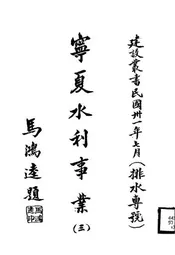 建設叢書民國卅一年七月(排水專號)
寧夏水利事業(三)
馬鴻逵題